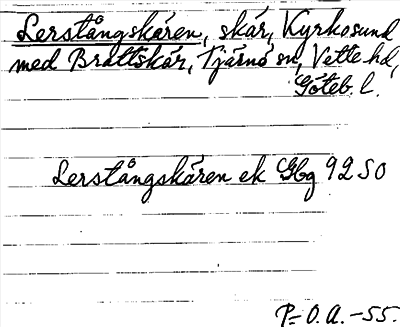 Lerstångskären, skär, Kyrkosund
med Brattskär, Tjärnö sn, Vette hd,
Göteb. l.
Lerstångskären ek Gbg 92 SO
P.-O.A. -55.